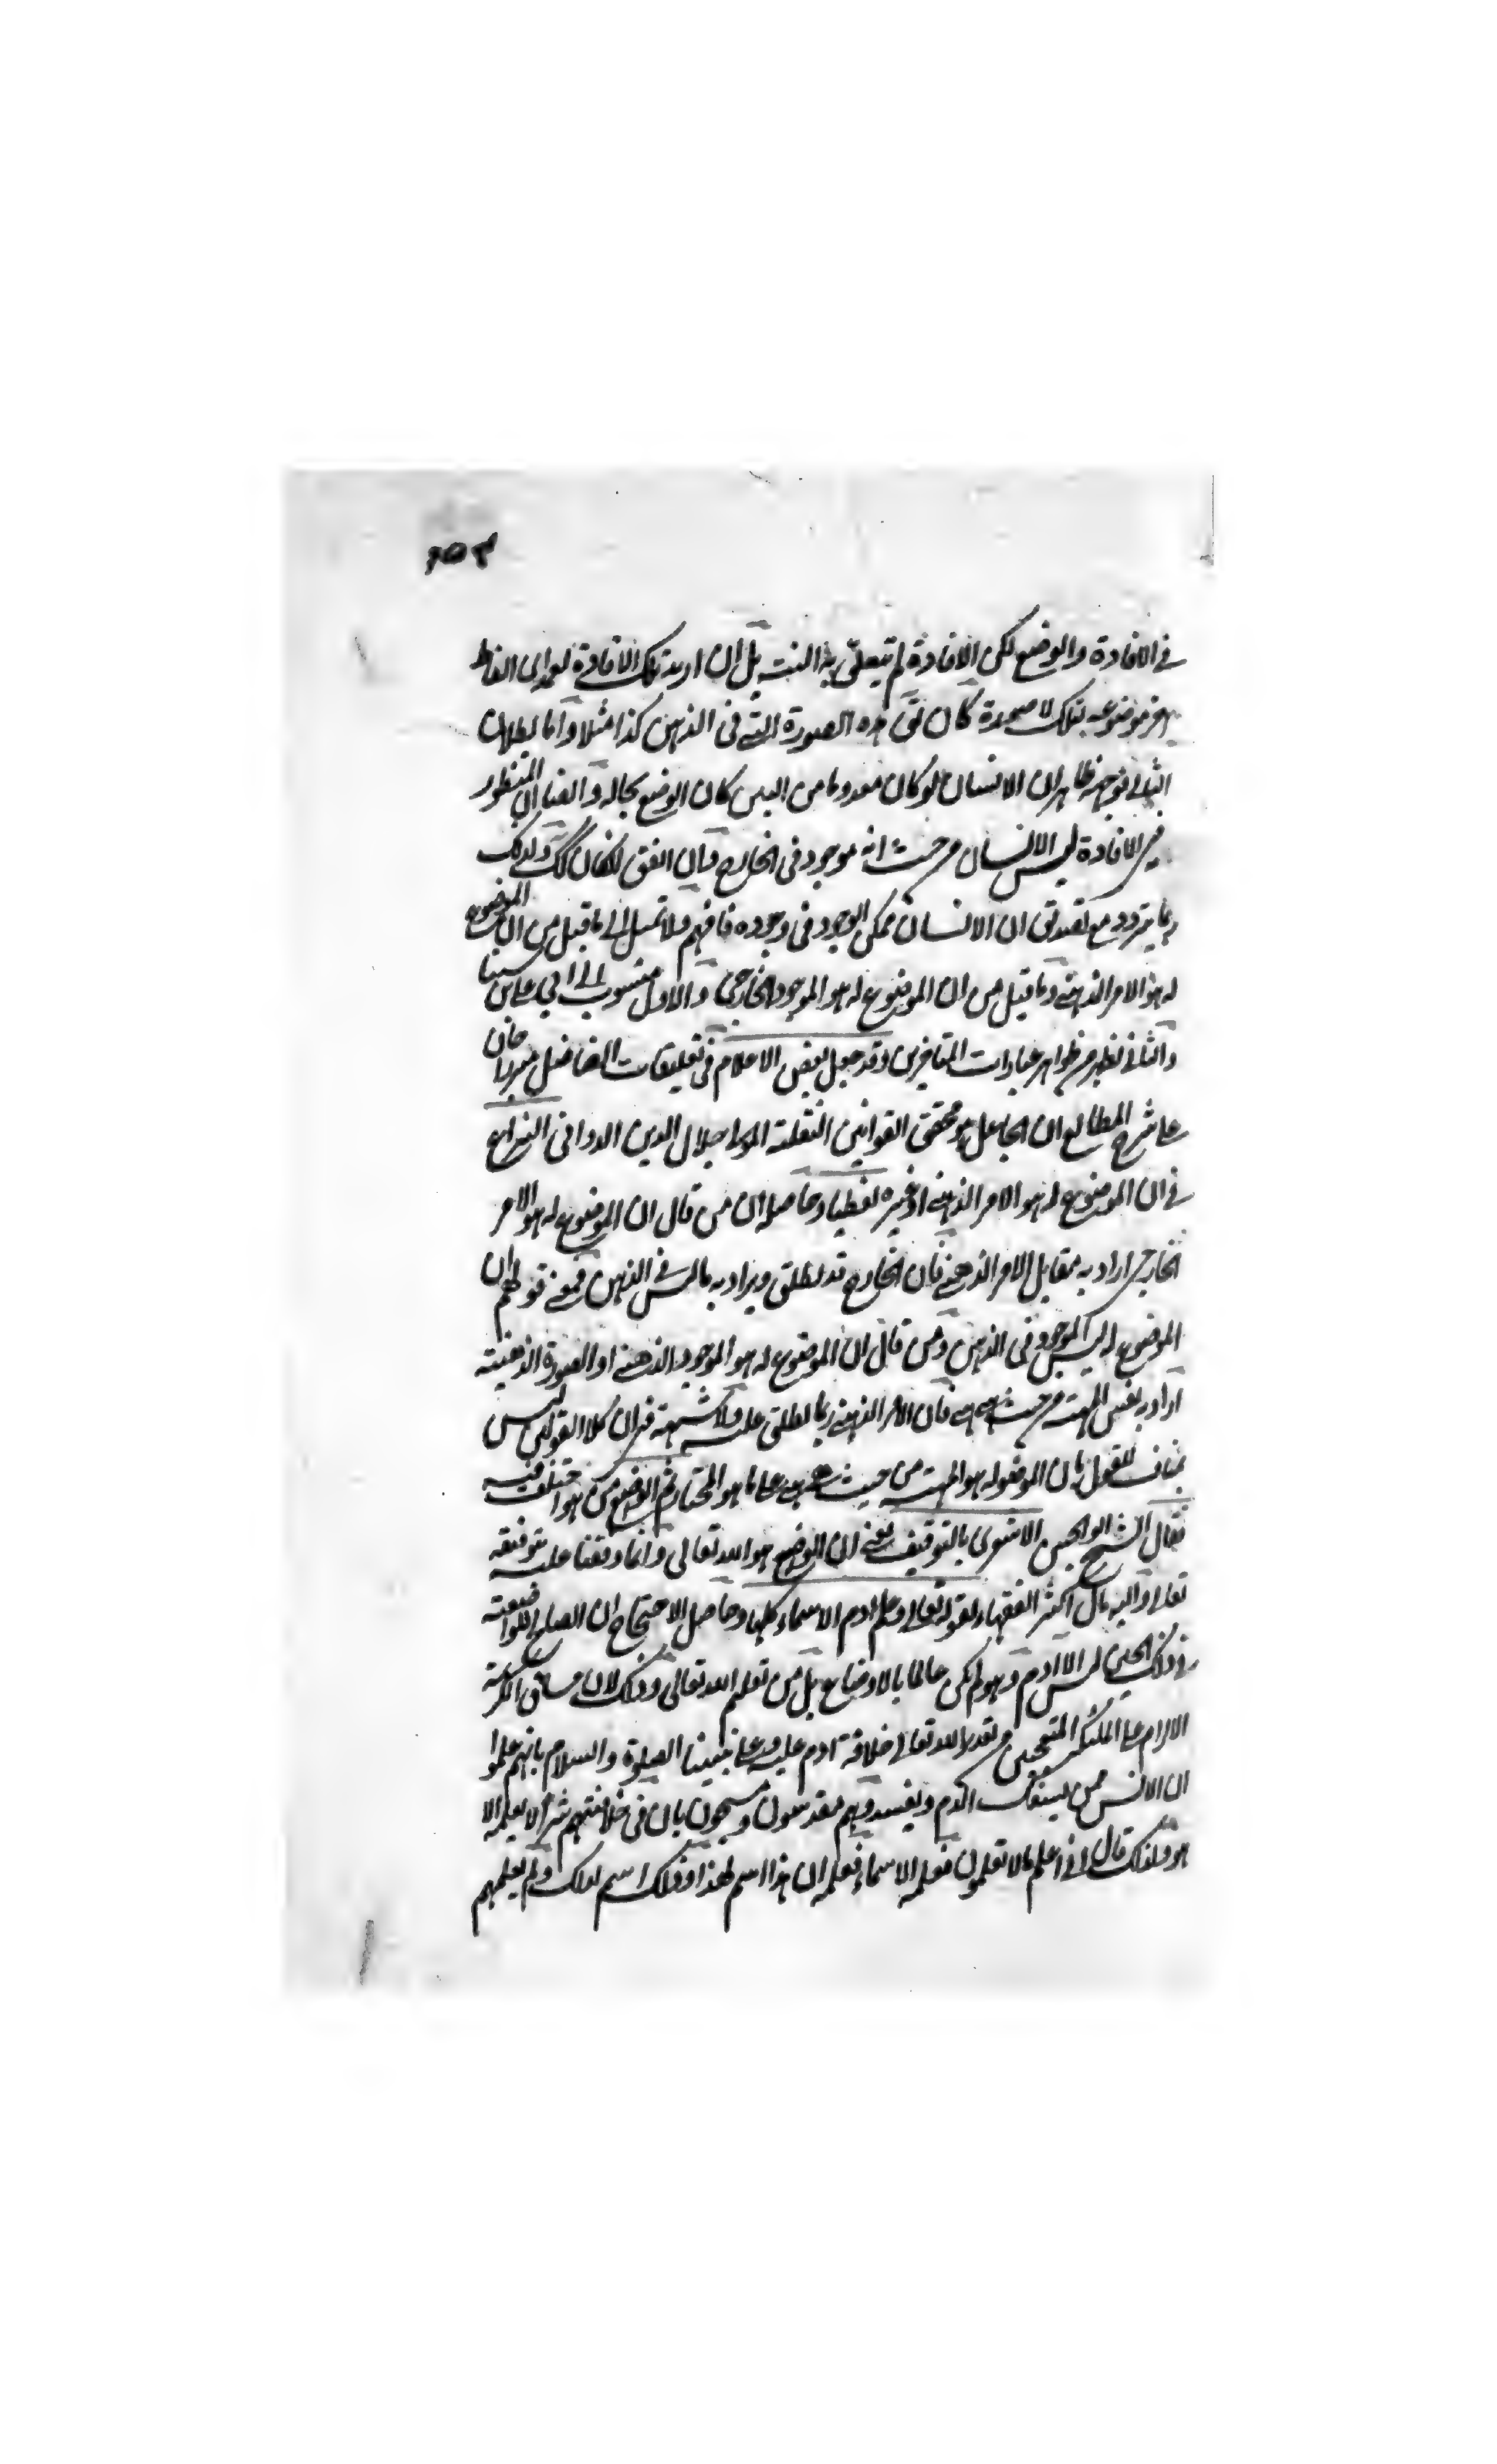 ١٥٣
في الافادة والوضع لكن الافادة لم يتعلق بهذا البتة بل ان اريد تلك الافادة لعمد الى الفاظ
اخر موضوعه بتلك لا محمدة كان تق هذه الصورة التي في الذهن كذا مثلا واما بطلان
الثاني فوجهه ظاهر ان الانسان لو كان معدوما من البين كان الوضع بحاله وايضا ان المنظور
في الافادة ليس الانسان من حيث انه موجود في الخارج وان اتفق لكان كك ولذلك
ربما يتردد مع تصديق ان الانسان ممكن الوجود في وجوده فافهم ولا تمل الى ما قيل من ان الموضوع
له هو الامر الذهني وما قيل من ان الموضوع له هو الموجود الخارجي والاول منسوب الى ابي علي بن سينا
والثاني يظهر من ظواهر عبارات المتاخرين وقد جعل بعض الاعلام في تعليقات الفاضل ميرزا جان
على شرح المطالع ان الجاعل هو محقق القوانين العقلية المولى جلال الدين الدواني النزاع
في ان الموضوع له هو الامر الذهني او غيره لفظيا وحاصله ان من قال ان الموضوع له هو الامر
الخارجي اراد به مقابل الامر الذهني فان الخارج قد يطلق ويراد به ما ليس في الذهن فمعنى قولهم ان
الموضوع له ليس الموجود في الذهن ومن قال ان الموضوع له هو الموجود الذهني او الصورة الذهنية
اراد به نفس المهية من حيث هي هي فان الامر الذهني ربما يطلق عليه ولا شبهة في ان كلا القولين ليس
بمناف للقول بان الموضوله هو المهية من حيث هي هي على ما هو المختار ثم الواضع من هو اختلف فيه
فقال الشيخ ابو الحسن الاشعري بالتوقيف يعني ان الواضع هو الله تعالى وانما وقفنا عليه بتوفيقه
تعالى واليه مال اكثر الفقهاء لقوله تعالى وعلم ادم الاسماء كلها وحاصل الاحتجاج ان الصالح للواضعية
في ذلك الحين ليس الا ادم وهو لم يكن عالما بالاوضاع بل من تعليم الله تعالى وذلك لان مساق الكريمة
الالزام على الملئكة المتعجبين من تقدير الله تعالى خلافة ادم عليه وعلى نبينا الصلوة والسلام بانهم علموا
ان الانس ممن يسفك الدم ويفسد وهم مقدسون ومسبحون بان في خلافتهم شرا لا يعلمه الا
هو ولذلك قال اني اعلم ما لا تعلمون فعلمه الاسماء فعلمه ان هذا اسم لهذا وذلك اسم لذلك ولم يعلمهم